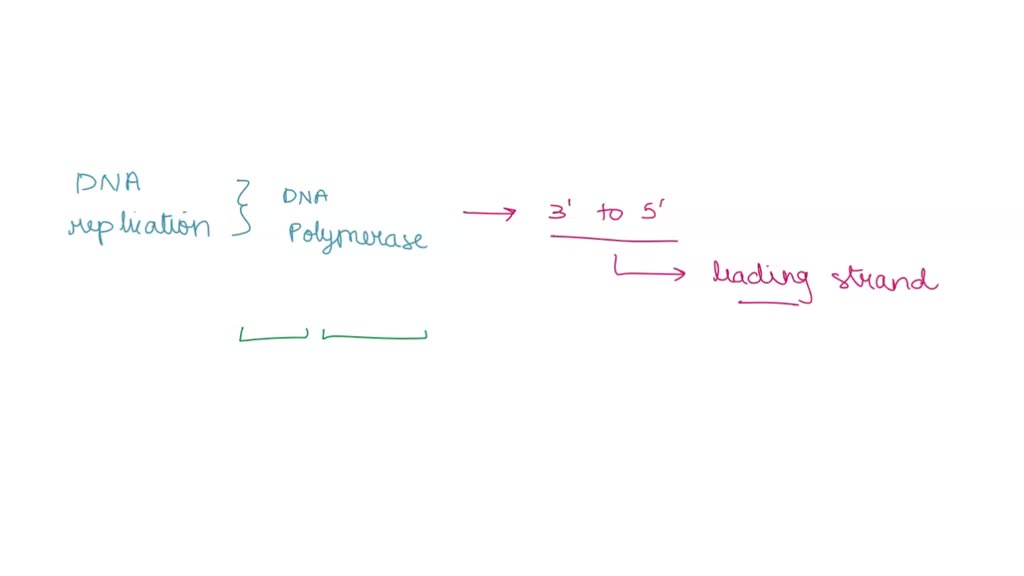 DNA
replication
DNA
Polymerase
3' to 5'
leading strand